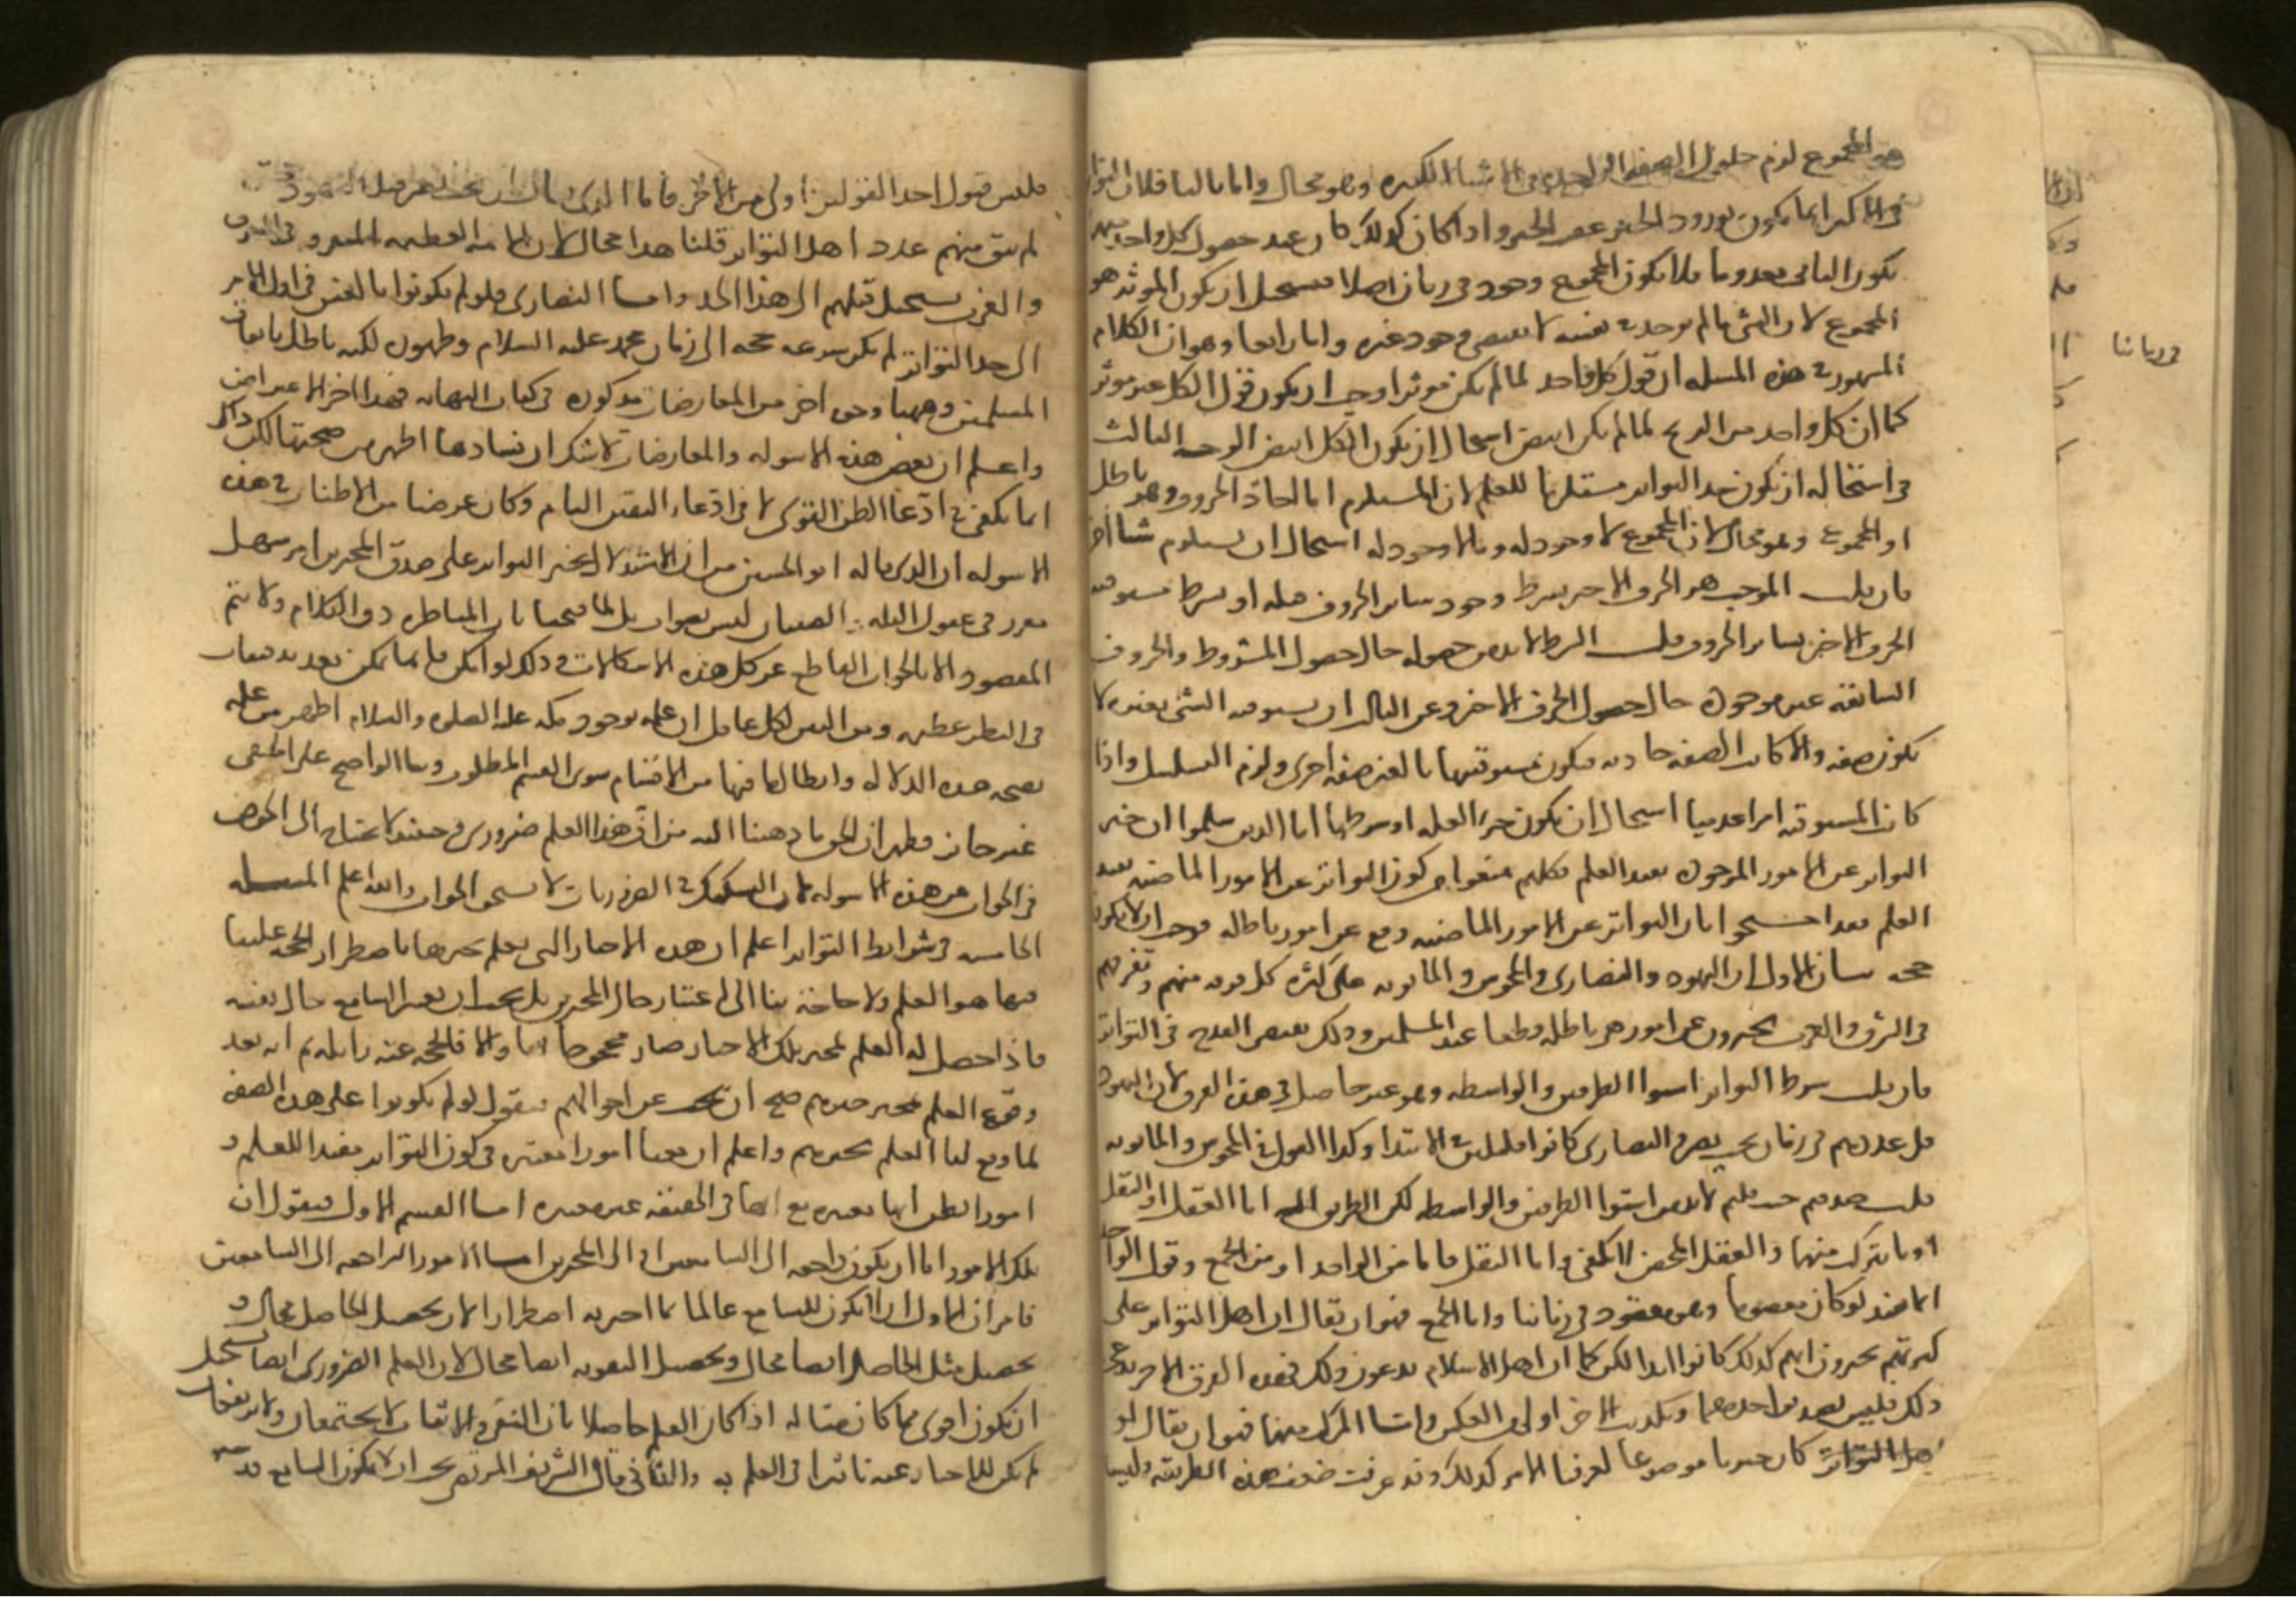 هو المجموع لزم حلول الصفة الواحدة في الاشيا الكثيره وهو محال واما ثالثا فلان التوا
في الاكثر انما يكون بورود الخبر عقب الخبر واذا كان كذلك كان عند حصول كل واحد منها
يكون الباقي معدوما فلا يكون للمجموع وجود في زمان اصلا فيستحيل ان يكون الموثر هو
المجموع لان الشي ما لم يوجد في نفسه لا يقتضي وجود غيره واما رابعا وهو ان الكلام
المشهور في هذه المسله ان قول كل واحد لما لم يكن موثرا وجب ان يكون قول الكل غير موثر
كما ان كل واحد من الزنج لما لم يكن ابيض استحال ان يكون الكل ابيض الوجه الثالث
في استحاله ان يكون خبر التواتر مستلزما للعلم لان المستلزم اما احاد الحروف وهو باطل
او المجموع وهو محال لان المجموع لا وجود له وما لا وجود له استحال ان يستلزم شيا اخر
فان قلت الموجب هو الحرف الاخير بشرط وجود ساير الحروف قبله او بشرط مسبوقيه
الحرف الاخير بساير الحروف قلت الشرط لابد من حصوله حال حصول المشروط والحروف
السابقه غير موجوده حال حصول الحرف الاخير وعن الثاني ان مسبوقيه الشي بغيره لا
تكون صفه والا كانت الصفه حادثه فتكون مسبوقيتها بالغير صفه اخرى ولزم التسلسل واذا
كانت المسبوقيه امرا عدميا استحال ان تكون جزء العله او شرطها اما الذين سلموا ان خبر
التواتر عن الامور الموجوده يفيد العلم فكلهم منعوا من كون التواتر عن الامور الماضيه يفيد
العلم فقد احتجوا بان التواتر عن الامور الماضيه وقع عن امور باطله فوجب ان لا يكون
حجه بيان الاول ان اليهود والنصارى والمجوس والمانويه على كثره كل فرقه منهم وتفرقهم
في الشرق والغرب يخبرون عن امور هي باطله قطعا عند المسلمين وذلك يقتضي القدح في التواتر
فان قلت شرط التواتر استوا الطرفين والواسطه وهو غير حاصل في هذه الفرق لان اليهود
قل عددهم في زمان بخت نصر والنصارى كانوا قليلين في الابتدا وكذا القول في المجوس والمانويه
قلت عددهم حيث قلتم لابد من استوا الطرفين والواسطه لكن الطريق اليه اما العقل او النقل
او ما يتركب منهما والعقل المحض لا يكفي واما النقل فاما من الواحد او من الجمع وقول الواحد
انما يفيد لو كان معصوما وهو مفقود في زماننا واما الجمع فهو ان يقال ان اهل التواتر على
كثرتهم يخبرون انهم كذلك كانوا ابدا لكن كما ان اهل الاسلام يدعون ذلك فهذه الفرق الاخر تدعي
ذلك فليس تصديق احدهما وتكذيب الاخر اولى من العكس واما المركب منهما فهو ان يقال لو
كان خبرا موضوعا لعرفنا الامر كذلك وقد عرفت ضعف هذه الطريقه وليس
فليس قبول احد القولين اولى من الاخر فاما الذي يقال ان بخت نصر قتل اليهود حتى
لم يبق منهم عدد اهل التواتر قلنا هذا محال لان الامه العظيمه المتفرقه في الشرق
والغرب يستحيل قتلهم الى هذا الحد واما النصارى فلو لم يكونوا بالغين في اول الامر
الى حد التواتر لم يكن شرعه حجه الى زمان محمد عليه السلام وظهوره لكنه باطل باتفاق
المسلمين وههنا وجوه اخر من المعارضات مذكوره في كتاب النهايه فهذا اخر الاعتراض
واعلم ان بعض هذه الاسوله والمعارضات لا شك ان فسادها اظهر من صحتها لكن ذلك
انما يكفي في ادعا الظن القوي لا في ادعاء اليقين التام وكان غرضنا من الاطناب في هذه
الاسوله ان الذي قاله ابو الحسين من ان الاستدلال بخبر التواتر على صدق المخبرين امر سهل
مقرر في عقول البله والصبيان ليس بصواب بل لما فتحنا باب المناظره دق الكلام ولا يتم
المقصود الا بالجواب القاطع عن كل هذه الاشكالات وذلك لو امكن فانما يمكن بعد تدقيقات
في النظر عظيمه ومن البين لكل عاقل ان علمه بوجود مكه ومحمد عليه الصلوه والسلام اظهر من علمه
بصحه هذه الدلاله وابطال ما فيها من الاقسام سوى القسم المطلوب وبنا الواضح على الخفي
غير جايز فظهر ان الحق ما ذهبنا اليه من ان هذا العلم ضروري وحينئذ لا نحتاج الى الخوض
في الجواب عن هذه الاسوله لان التشكيك في الضروريات لا يستحق الجواب والله اعلم المسله
الخامسه في شرايط التواتر اعلم ان هذه الاخبار التي يعلم مخبرها باضطرار الحجه علينا
فيها هو العلم ولا حاجه بنا الى اعتبار حال المخبرين بل يجب ان يعتبر السامع حال نفسه
فاذا حصل له العلم بمخبر تلك الاخبار صار محجوجا بها والا فالحجه عنه زايله ثم انه بعد
وقوع العلم بمخبر خبرهم صح ان نبحث عن احوالهم فنقول لو لم يكونوا على هذه الصفه
لما وقع لنا العلم بخبرهم واعلم ان ههنا امورا معتبره في كون التواتر مفيدا للعلم و
امورا يظن انها معتبره مع انها في الحقيقه غير معتبره اما القسم الاول فنقول ان
تلك الامور اما ان تكون راجعه الى السامعين او الى المخبرين اما الامور الراجعه الى السامعين
فامران الاول ان لا يكون السامع عالما بما اخبر به اضطرارا لان تحصيل الحاصل محال و
تحصيل مثل الحاصل ايضا محال وتحصيل التقويه ايضا محال لان العلم الضروري ايضا يستحيل
ان يكون اقوى مما كان مثاله اذا كان العلم حاصلا بان النفي والاثبات لا يجتمعان ولا يرتفعان
لم يكن للاخبار عنه تاثير في العلم به والثاني قال الشريف المرتضى يجب ان لا يكون السامع قد
في زماننا